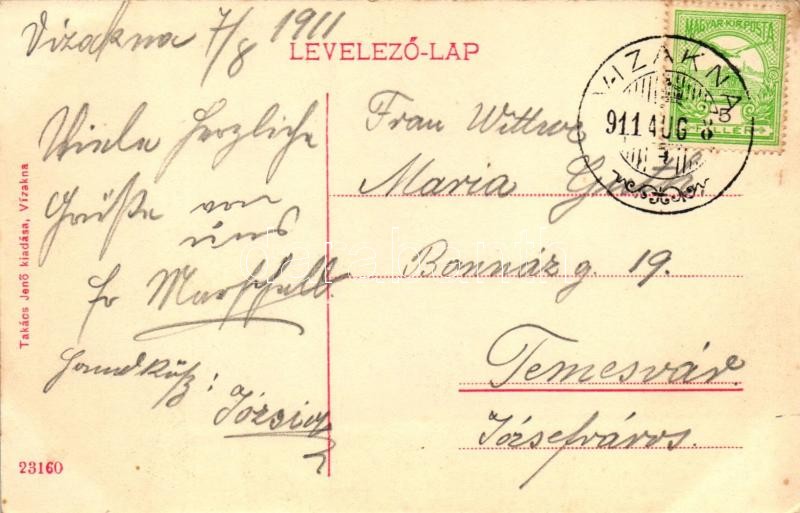 Vizakna 7/8 1911
LEVELEZŐ-LAP
MAGYAR·KIR·POSTA
5
FILLER
VIZAKNA
911 AUG 8
Viele herzliche
Grüße von
uns
Fr Marschall
Handküß:
Józsi
Frau Wittwe
Maria
Bonnáz g. 19.
Temesvár
Józsefváros.
Takács Jenő kiadása, Vizakna
23160